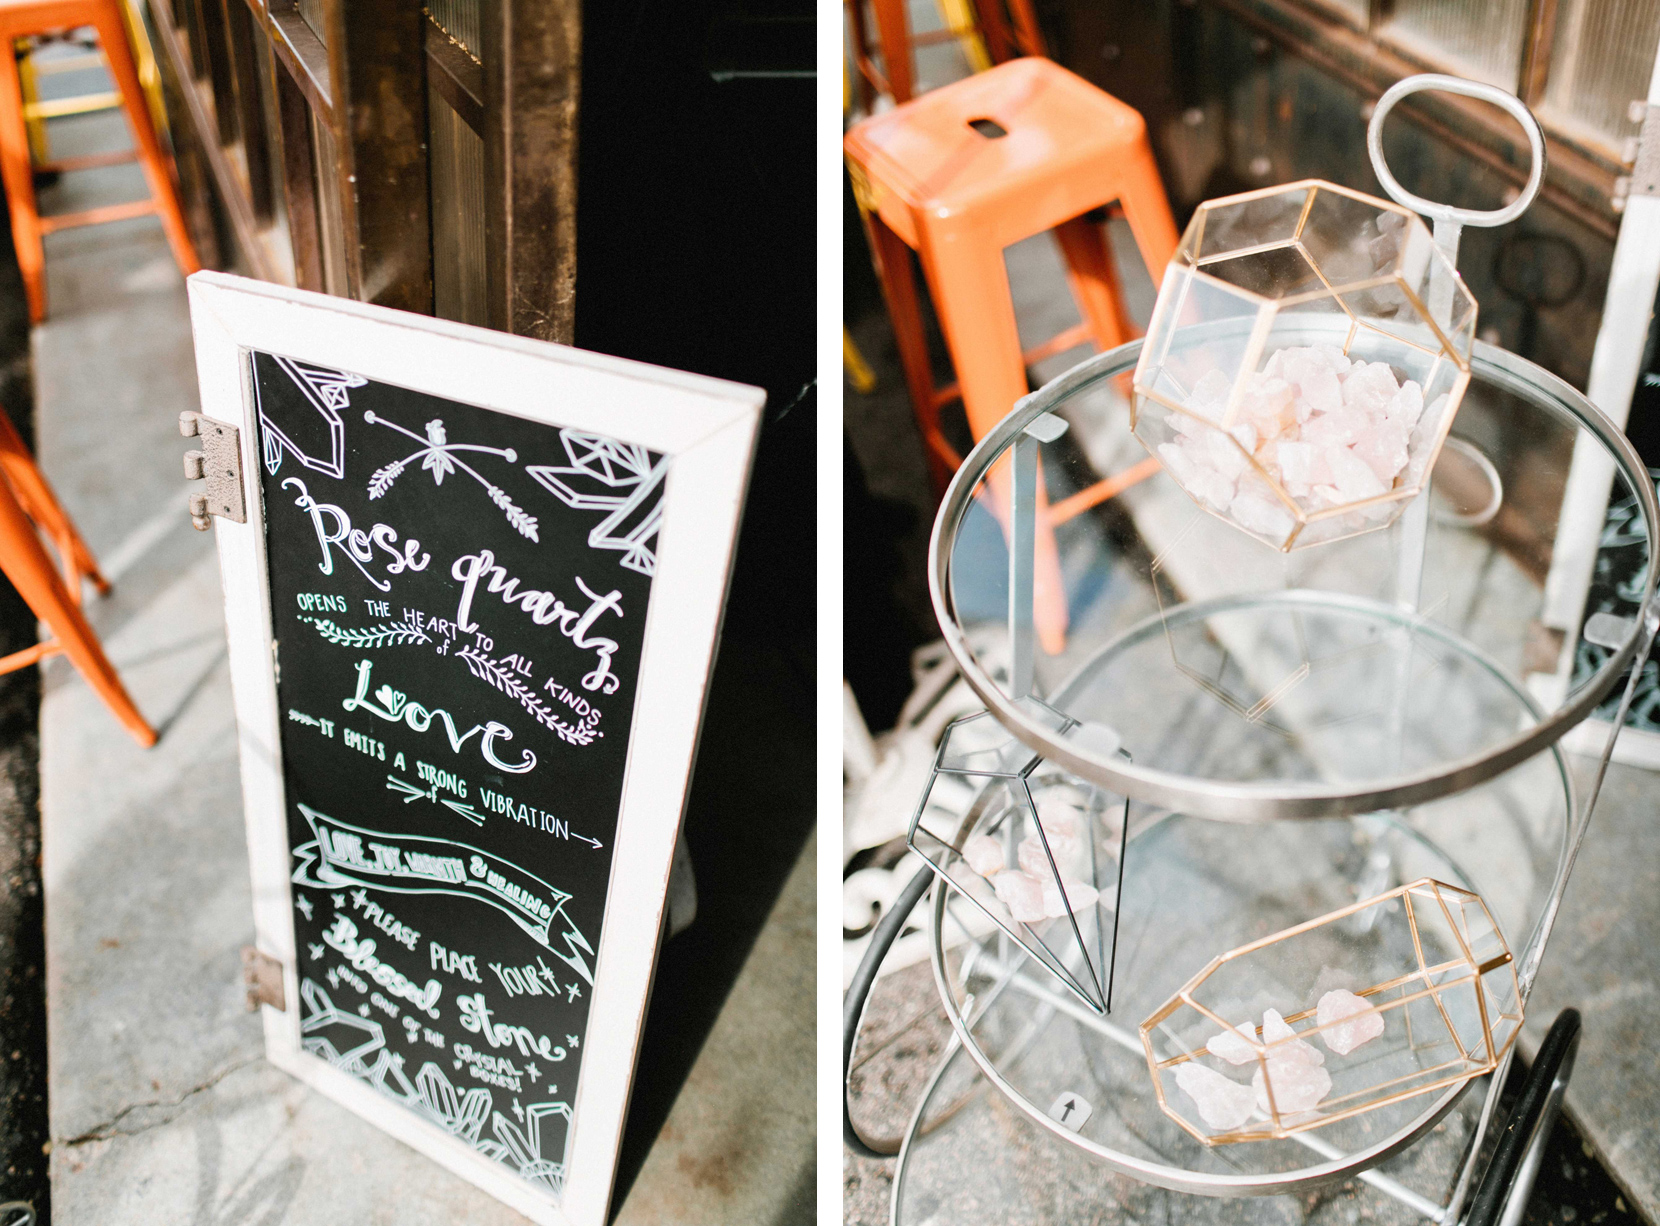 Rose quartz
OPENS THE HEART TO ALL KINDS
of
Love
IT EMITS A STRONG VIBRATION
of
LOVE, JOY, WARMTH & HEALING
PLEASE PLACE YOUR
Blessed Stone
INTO ONE OF THE CRYSTAL
BOXES!